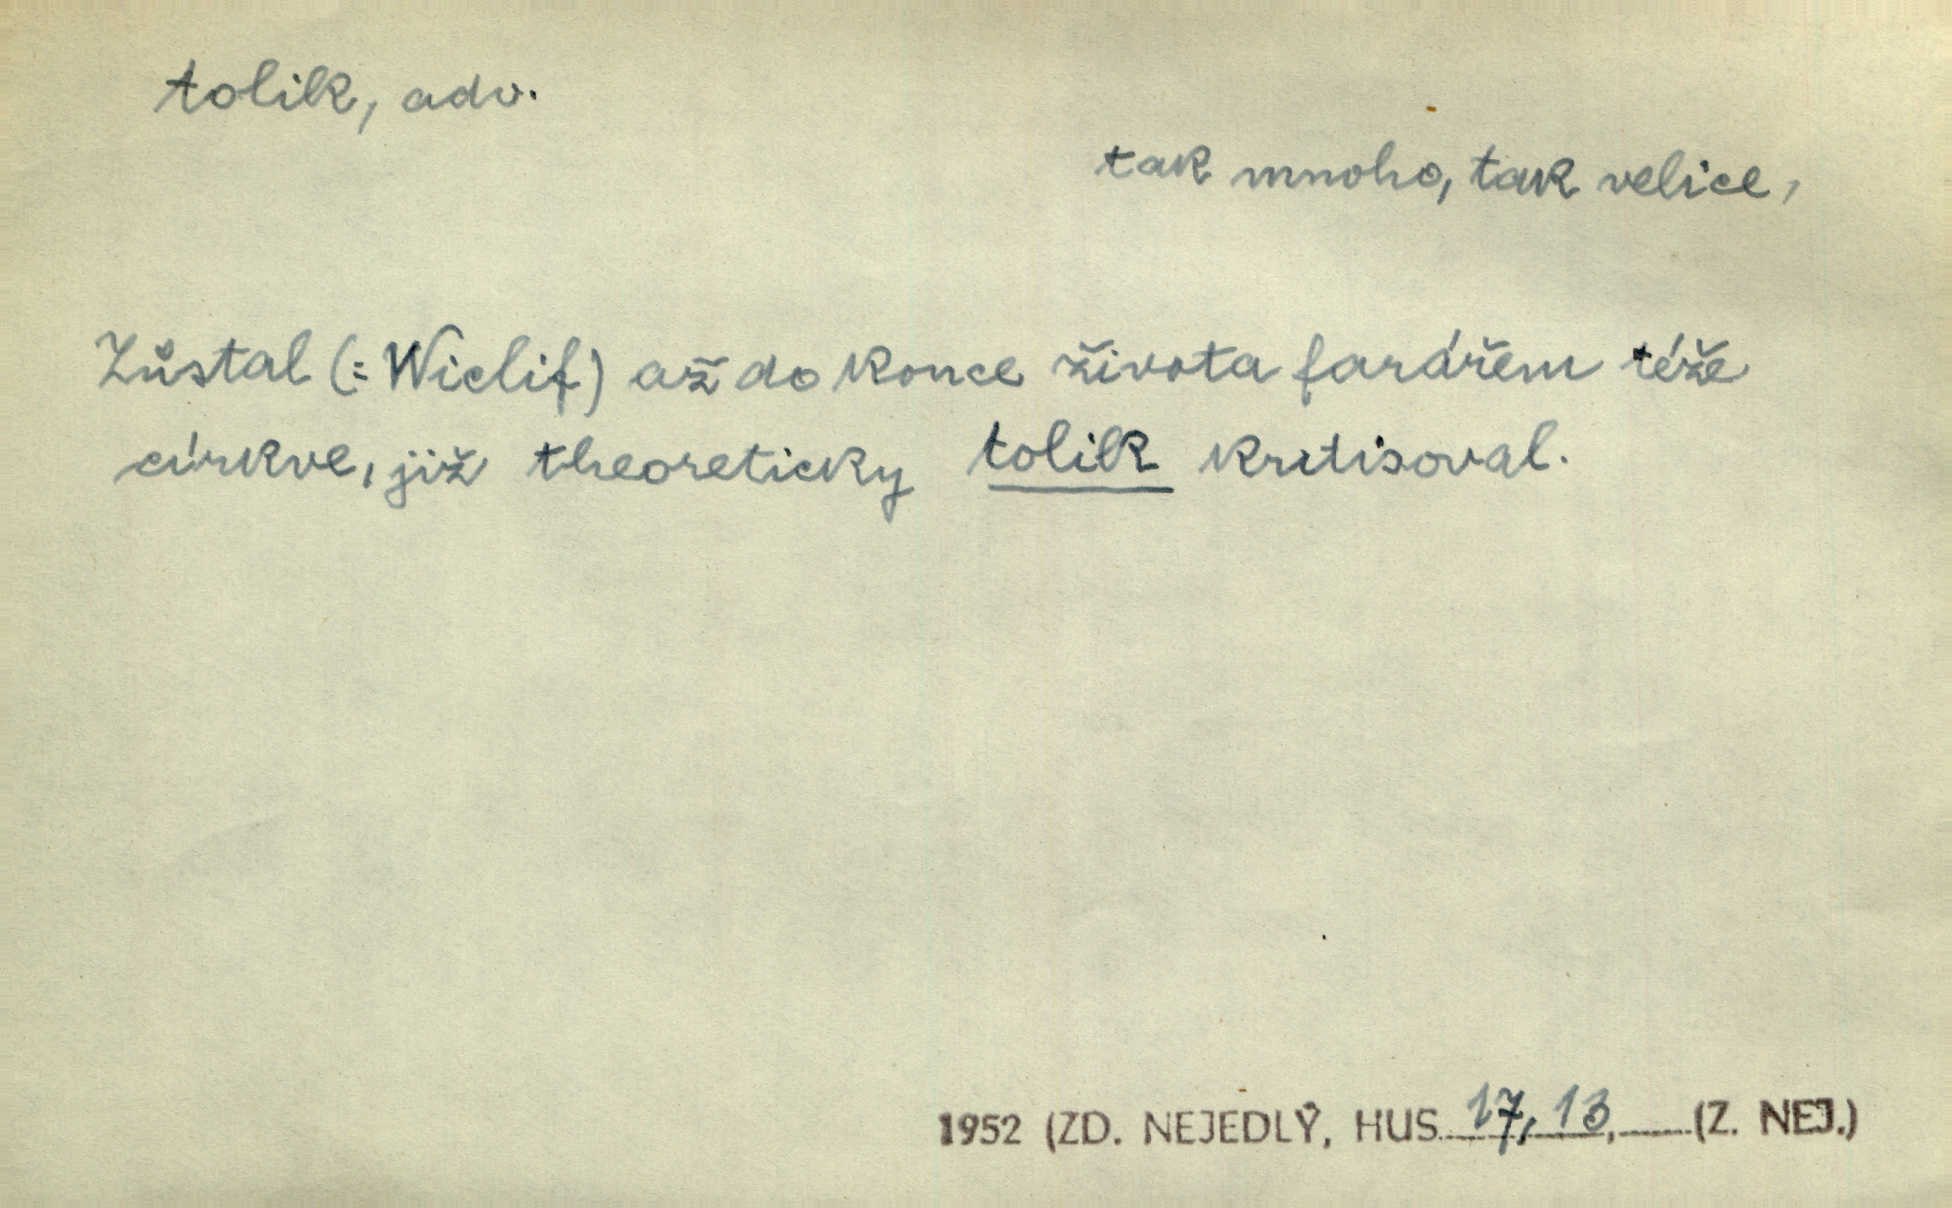 tolik, adv.
tak mnoho, tak velice,
Zůstal (= Wiclif) až do konce života farářem téže
církve, již theoreticky tolik kritisoval.
1952 (ZD. NEJEDLÝ, HUS 17, 13, (Z. NEJ.)